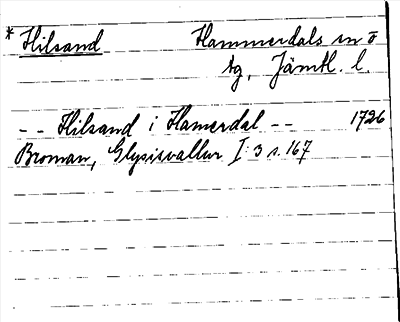 * Hilsand Hammerdals sn o
tg, Jämtl. l.
-- Hilsand i Hamerdal -- 1726
Broman, Glysisvallur I: 3 s. 167